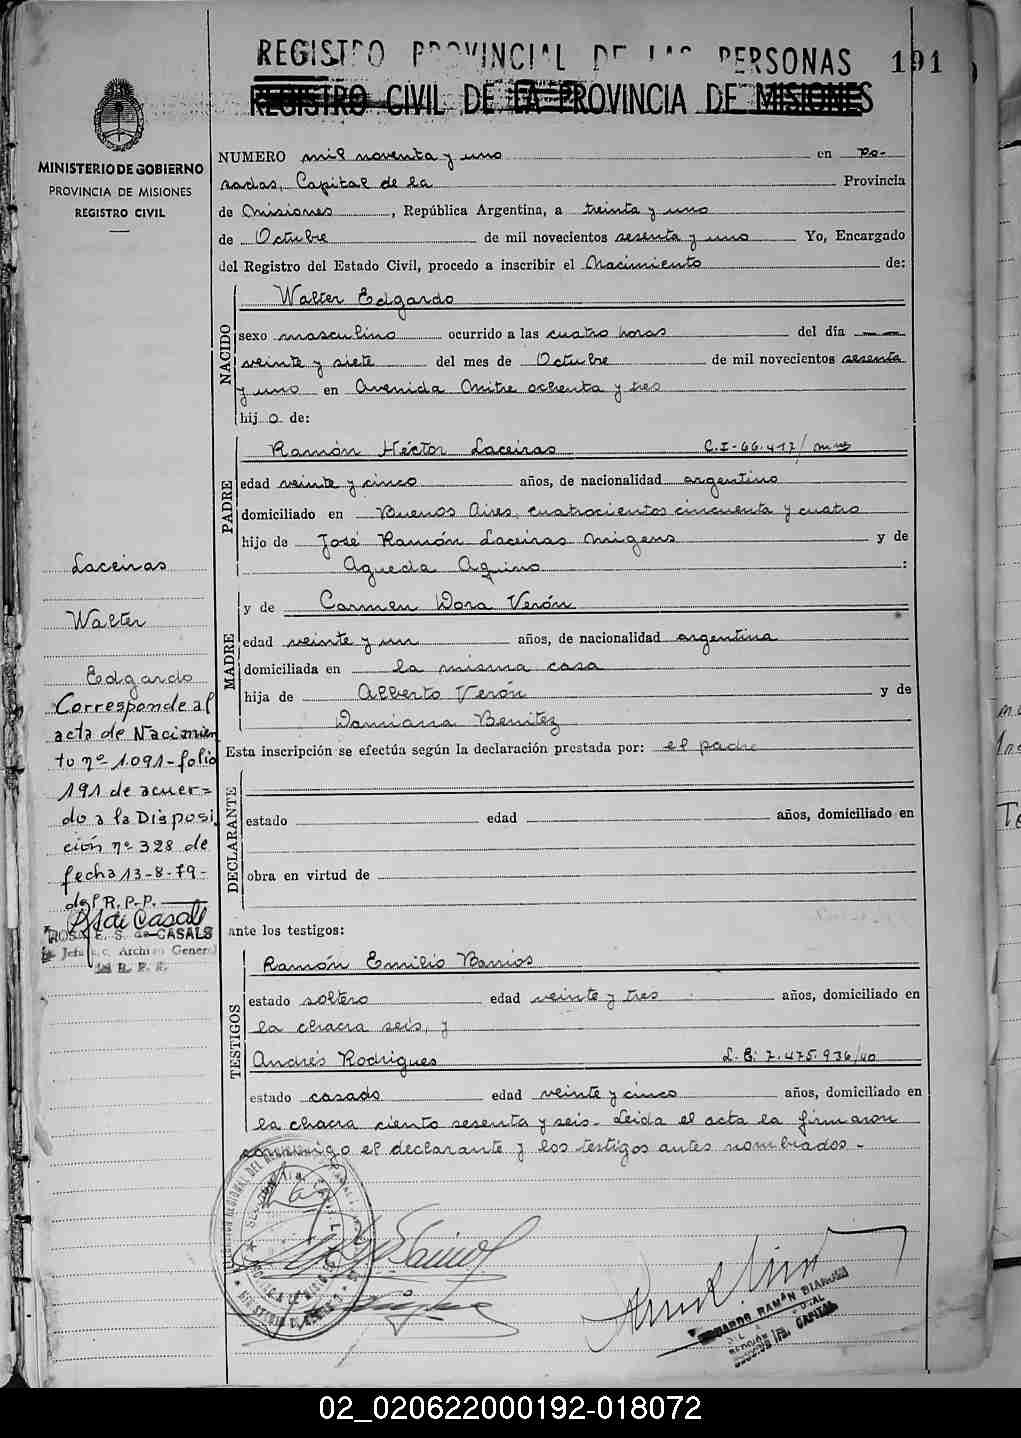 REGISTRO PROVINCIAL DE LAS PERSONAS 191
REGISTRO CIVIL DE LA PROVINCIA DE MISIONES
MINISTERIO DE GOBIERNO
PROVINCIA DE MISIONES
REGISTRO CIVIL
NUMERO mil noventa y uno en Po-
sadas, Capital de la Provincia
de Misiones, República Argentina, a treinta y uno
de Octubre de mil novecientos sesenta y uno Yo, Encargado
del Registro del Estado Civil, procedo a inscribir el Nacimiento de:
NACIDO
Walter Edgardo
sexo masculino ocurrido a las cuatro horas del día
veinte y siete del mes de Octubre de mil novecientos sesenta
y uno en Avenida Mitre ochenta y tres
hijo de:
PADRE
Ramón Héctor Laceiras C.I-66.417/
edad veinte y cinco años, de nacionalidad argentino
domiciliado en Buenos Aires, cuatrocientos cincuenta y cuatro
hijo de José Ramón Laceiras Migens y de
Agueda Aquino :
MADRE
y de Carmen Dora Verón
edad veinte y un años, de nacionalidad argentina
domiciliada en la misma casa
hija de Alberto Verón y de
Damiana Benitez
Esta inscripción se efectúa según la declaración prestada por: el padre
DECLARANTE
estado edad años, domiciliado en
obra en virtud de
ante los testigos:
TESTIGOS
Ramón Emilio Barrios
estado soltero edad veinte y tres años, domiciliado en
la chacra seis, y
Andrés Rodrigues L.E: 7.475.936/40
estado casado edad veinte y cinco años, domiciliado en
la chacra ciento sesenta y seis. Leida el acta la firmaron
conmigo el declarante y los testigos antes nombrados.-
Laceiras
Walter
Edgardo
Corresponde al
acta de Nacimien
to nº 1.091-folio
191 de acuer-
do a la Disposi
ción nº 328 de
fecha 13-8-79-
del R.P.P.
ROSA E. S. de CASALS
Jefa Archivo General
del R. P. P.
EDUARDO RAMÓN
CAPITAL
02_020622000192-018072